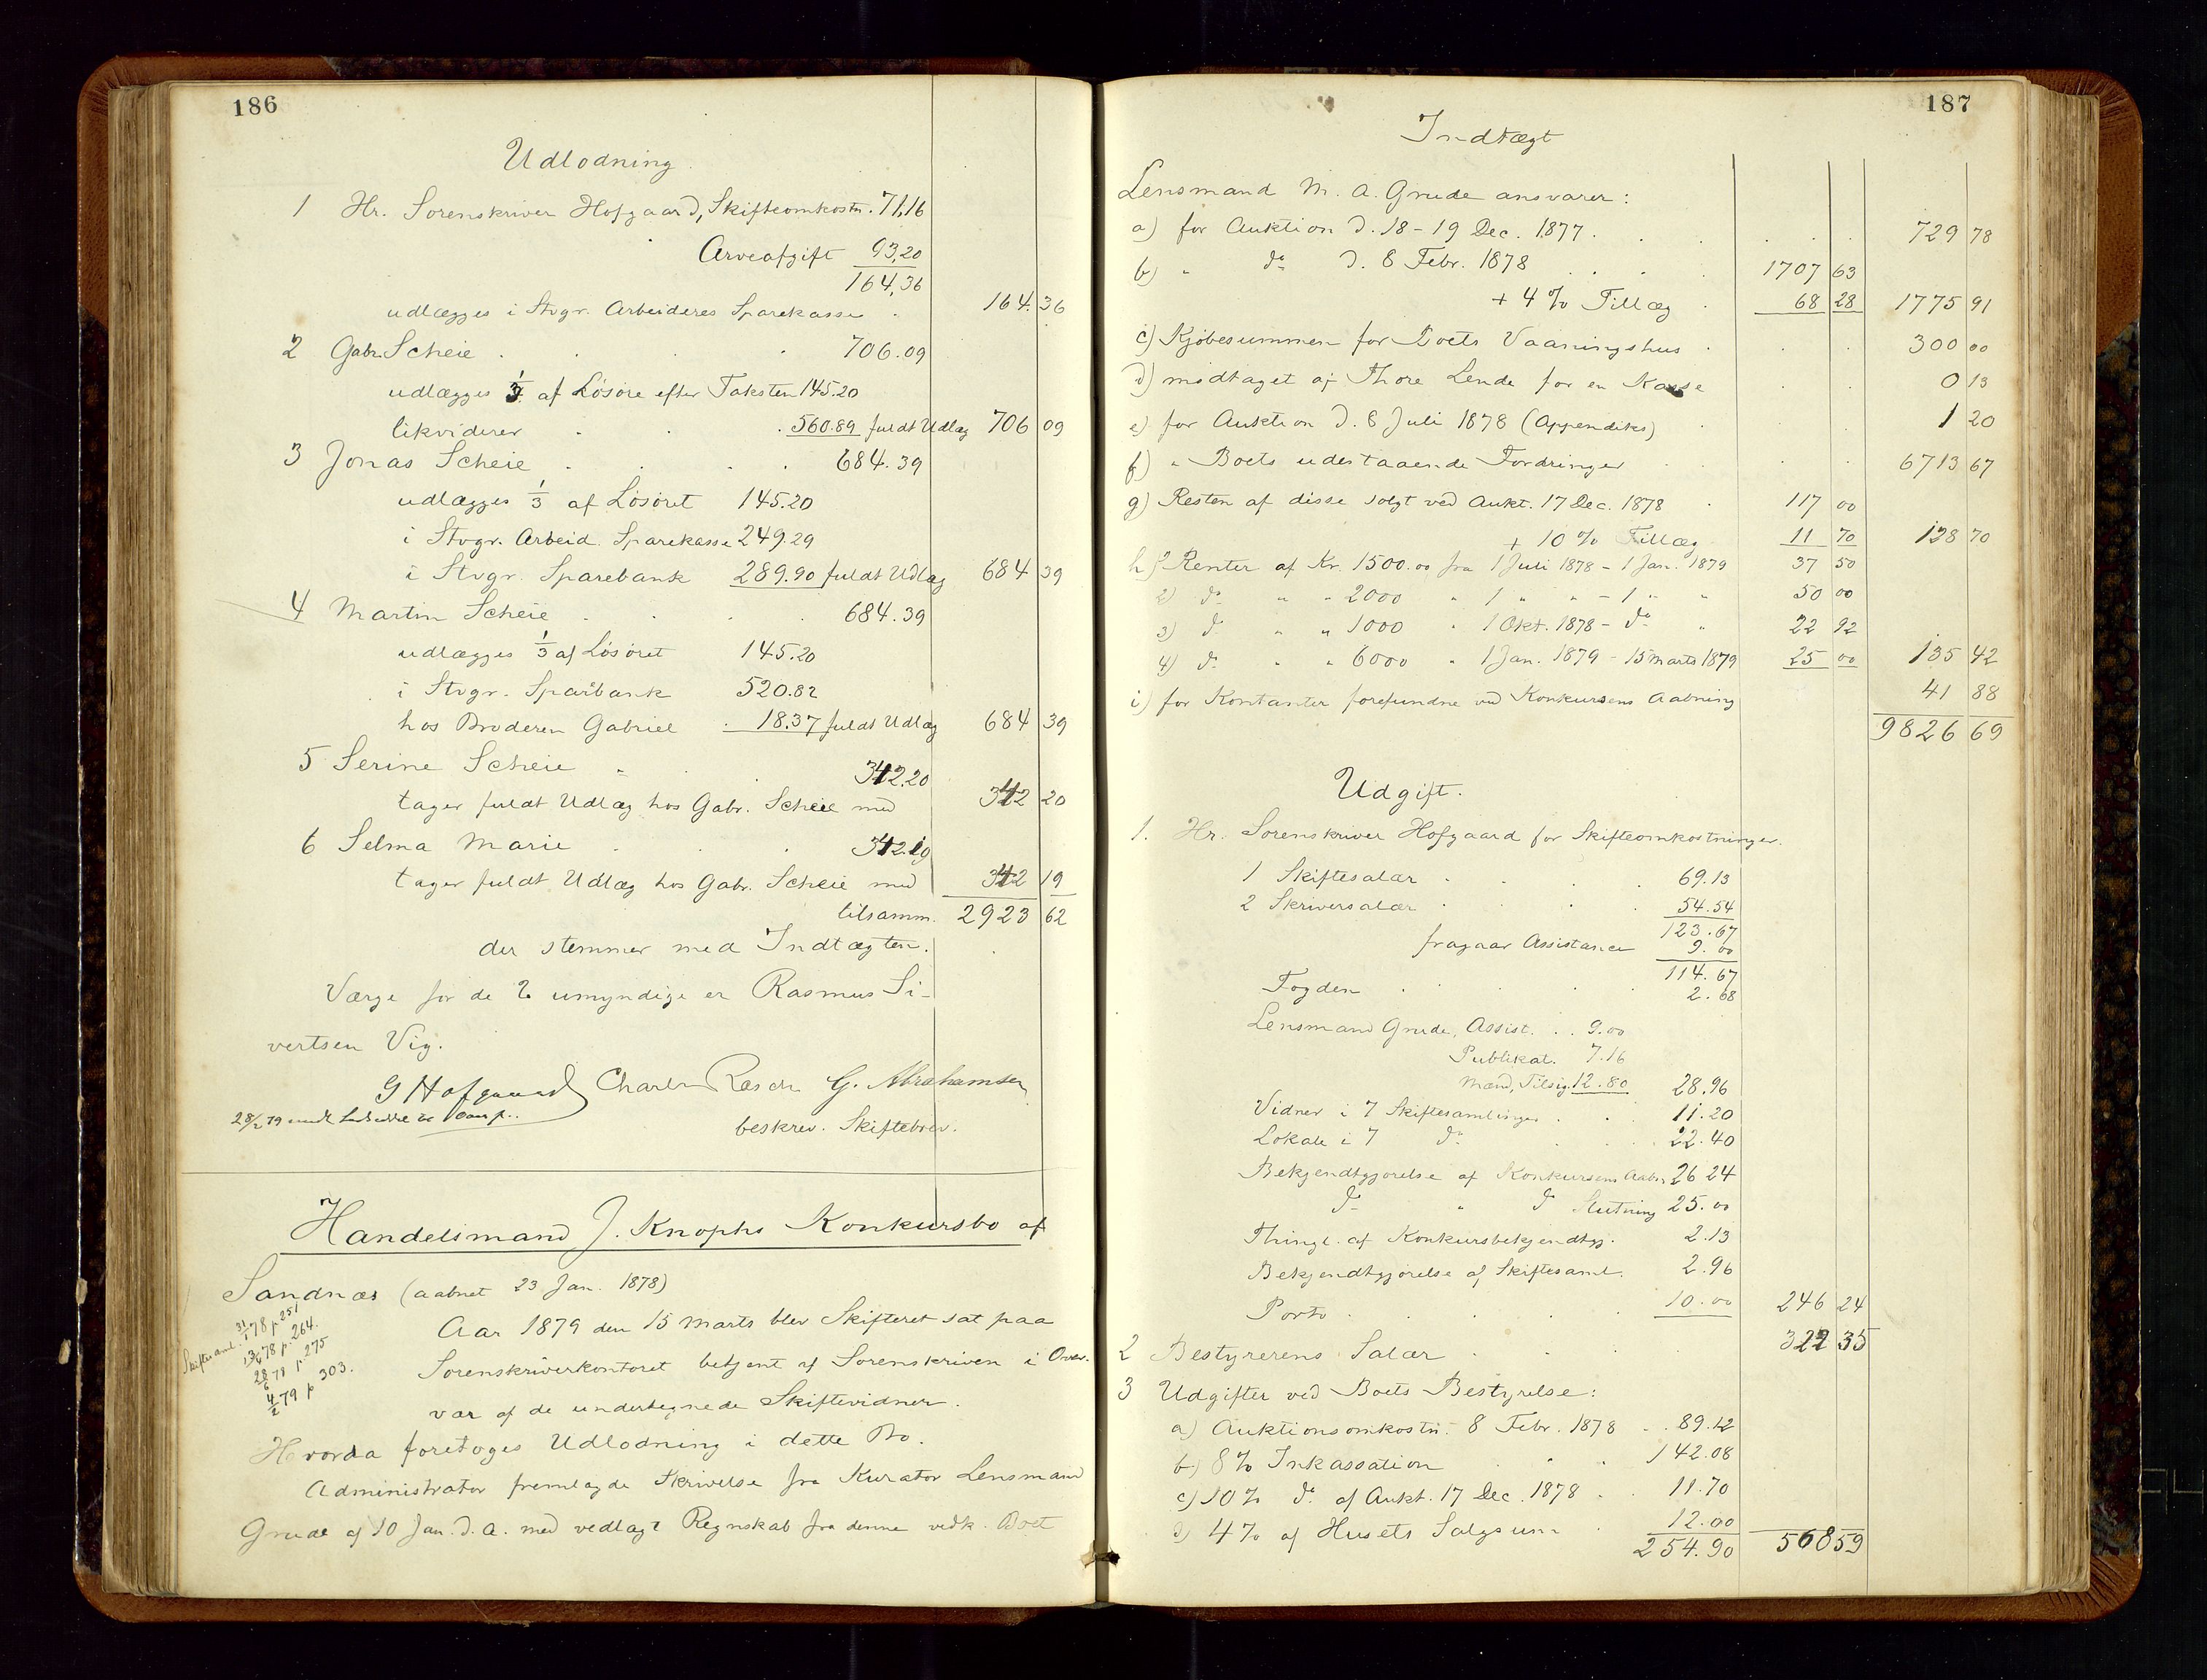 186
Udlodning.
1 Hr. Sorenskriver Hofgaard, Skifteomkostn. 71,16
Arveafgift 93,20
164,36
udlægges i Stvgr. Arbeideres Sparekasse . 164. 36
2 Gabr. Scheie . . . 706.09
udlægges 1/3 af Løsøre efter Taksten 145.20
likviderer . . . 560.89 fuldt Udlæg 706 09
3 Jonas Scheie . . . . 684.39
udlægges 1/3 af Løsøret 145.20
i Stvgr. Arbeid. Sparekasse 249.29
i Stvgr. Sparebank 289.90 fuldt Udlæg 684 39
4 Martin Scheie . . . . 684.39
udlægges 1/3 af Løsøret 145.20
i Stvgr. Sparbank 520.82
hos Broderen Gabriel . 18.37 fuldt Udlæg 684 39
5 Serine Scheie . . . 342.20
tager fuldt Udlæg hos Gabr. Scheie med 342 20
6 Selma Marie . . . 342.19
tager fuldt Udlæg hos Gabr. Scheie med 342 19
tilsamm. 2923 62
der stemmer med Indtægten.
Værge for de 2 umyndige er Rasmus Si-
vertsen Vig.
G Hofgaard Charles Rasch G. Abrahamsen
28/2 79
beskrev. Skiftebrev.
Handelsmand J. Knophs Konkursbo af
Sandnæs (aabnet 23 Jan. 1878)
Skiftesaml. 31/1 78 p 251
13/6 78 p. 264.
28/6 78 p. 275
4/2 79 p 303.
Aar 1879 den 15 Marts blev Skifteret sat paa
Sorenskriverkontoret betjent af Sorenskriveren i Over-
vær af de undertegnede Skiftevidner.
Hvorda foretoges Udlodning i dette Bo.
Administrator fremlagde Skrivelse fra Kurator Lensmand
Grude af 10 Jan. d. A. med vedlagt Regnskab fra denne vedk. Boet
187
Indtægt
Lensmand M. A. Grude ansvarer:
a) for Auktion d. 18-19 Dec. 1877 . . . . . 729 78
b) " do d. 8 Febr. 1878 . . . . 1707 63
+ 4 % Tillæg . 68 28 1775 91
c) Kjøbesummen for Boets Vaaningshus . . . 300 00
d) modtaget af Thore Lende for en Kasse . . 0 13
e) for Auktion d. 8 Juli 1878 (Appendiks) . . . 1 20
f) " Boets udestaaende Fordringer . . . 6713 67
g) Resten af disse solgt ved Aukt. 17 Dec. 1878 . 117 00
+ 10 % Tillæg 11 70 128 70
h) 1) Renter af Kr. 1500.00 fra 1 Juli 1878 - 1 Jan. 1879 37 50
2) do " " 2000 " 1 " " - 1 " " 50 00
3) do " " 1000 " 1 Okt. 1878 - do " 22 92
4) do " " 6000 " 1 Jan. 1879 - 15 Marts 1879 25 00 135 42
i) for Kontanter forefundne ved Konkursens Aabning 41 88
9826 69
Udgift.
1. Hr. Sorenskriver Hofgaard for Skifteomkostninger.
1 Skiftesalær . . . . 69.13
2 Skriversalær . . . . 54.54
123.67
fragaar Assistance 9.00
114.67
Fogden . . . . 2.68
Lensmand Grude, Assist. . . 9.00
Publikat. 7.16
Mænd, Tilsig. 12.80 28.96
Vidner i 7 Skiftesamlinger . . . 11.20
Lokale i 7 do . . . 22.40
Bekjendtgjørelse af Konkursens Aabn. 26 24
do " do Slutning 25.00
Thingl. af Konkursbekjendtgj. 2.13
Bekjendtgjørelse af Skiftesaml. 2.96
Porto . . . . 10.00 246 24
2 Bestyrerens Salær . . . 322 35
3 Udgifter ved Boets Bestyrelse:
a) Auktionsomkostn. 8 Febr. 1878 . . 89.12
b) 8 % Inkassation . . . 142.08
c) 10 % do af Aukt. 17 Dec. 1878 . . 11.70
d) 4 % af Husets Salgsum . 12.00
254.90 568 59